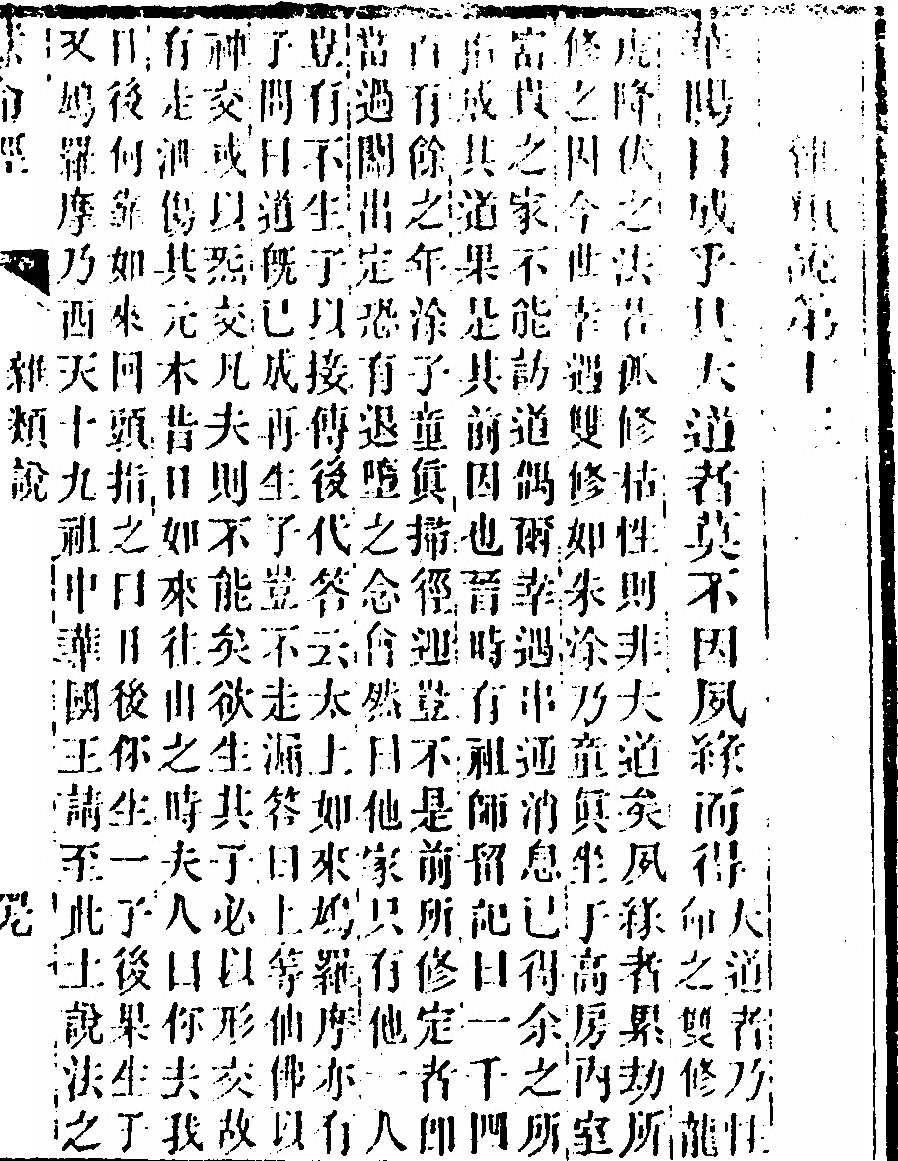 雜類說第十三
華陽曰成乎其大道者莫不因夙緣而得
大道者乃性
命之雙修龍
虎降伏之法若孤修枯性則非大道矣夙緣者累劫所
修之因今世幸遇雙修如朱涂乃童真坐于高房內室
富貴之家不能訪道偶爾幸遇串通消息已得余之所
指成其道果是其前因也晉時有祖師留記曰一千四
百有餘之年涂子童眞掃徑迎豈不是前所修定者即
當過關出定恐有退墮之念然曰他家只有他一人
豈有不生子以接傳後代答云太上如來鳩羅摩亦有
子問曰道既已成再生子豈不走漏答曰上等仙佛以
神交或以炁交凡夫則不能矣欲生其子必以形交故
有走泄傷其元本昔日如來往山之時夫人曰你去我
日後何靠如來回頭指之曰日後你生一子後果生子
又鳩羅摩乃西天十九祖中華國王請至此土說法之
命經 雜類說